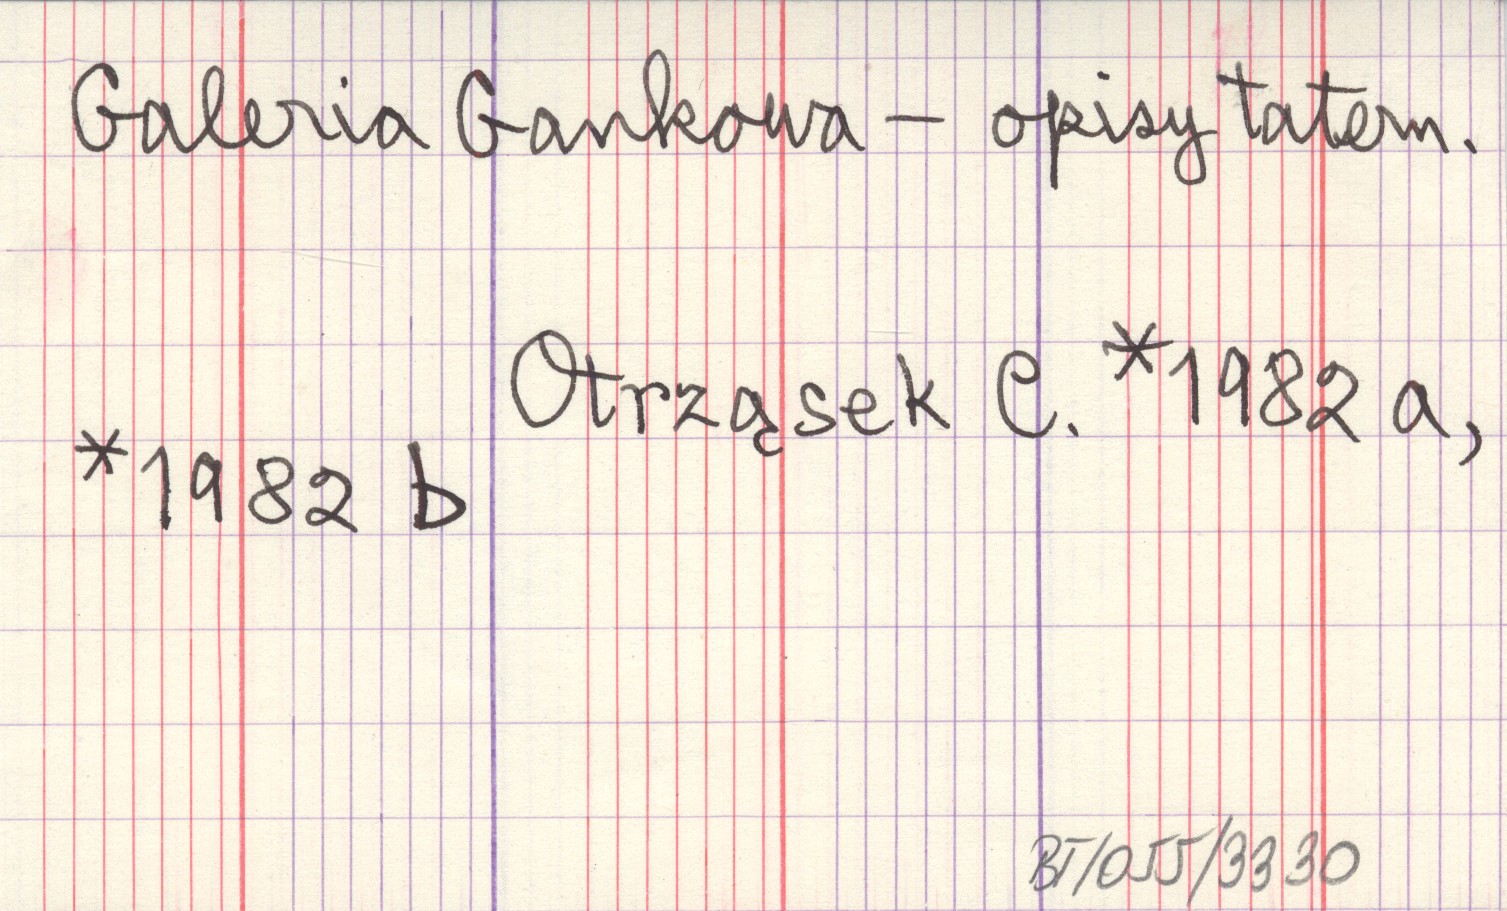 Galeria Gankowa – opisy tatern.
Otrząsek C. *1982 a,
*1982 b
BT/055/3330